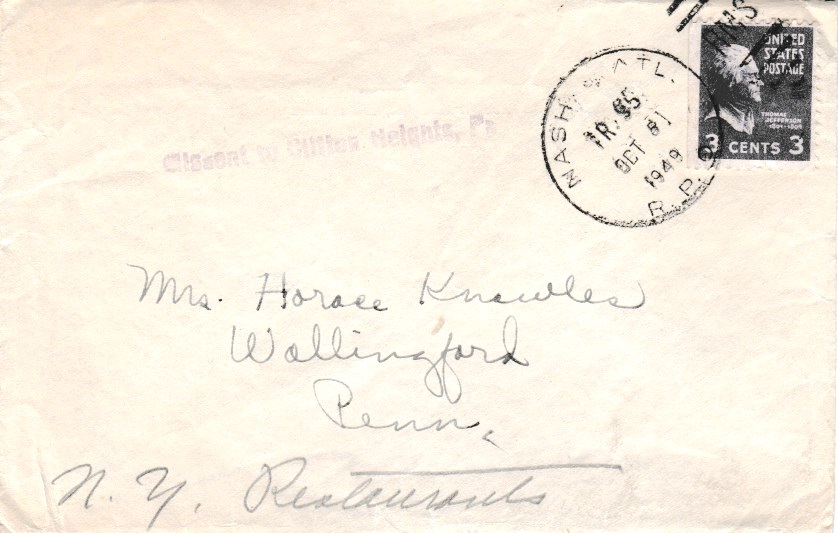 RMS
UNITED
STATES
POSTAGE
THOMAS
JEFFERSON
3 CENTS 3
WASH. & ATL.
TR. 35
OCT 31
1949
R.P.O.
Missent to Clifton Heights, Pa
Mrs. Horace Knowles
Wallingford
Penn.
N. Y. Restaurants